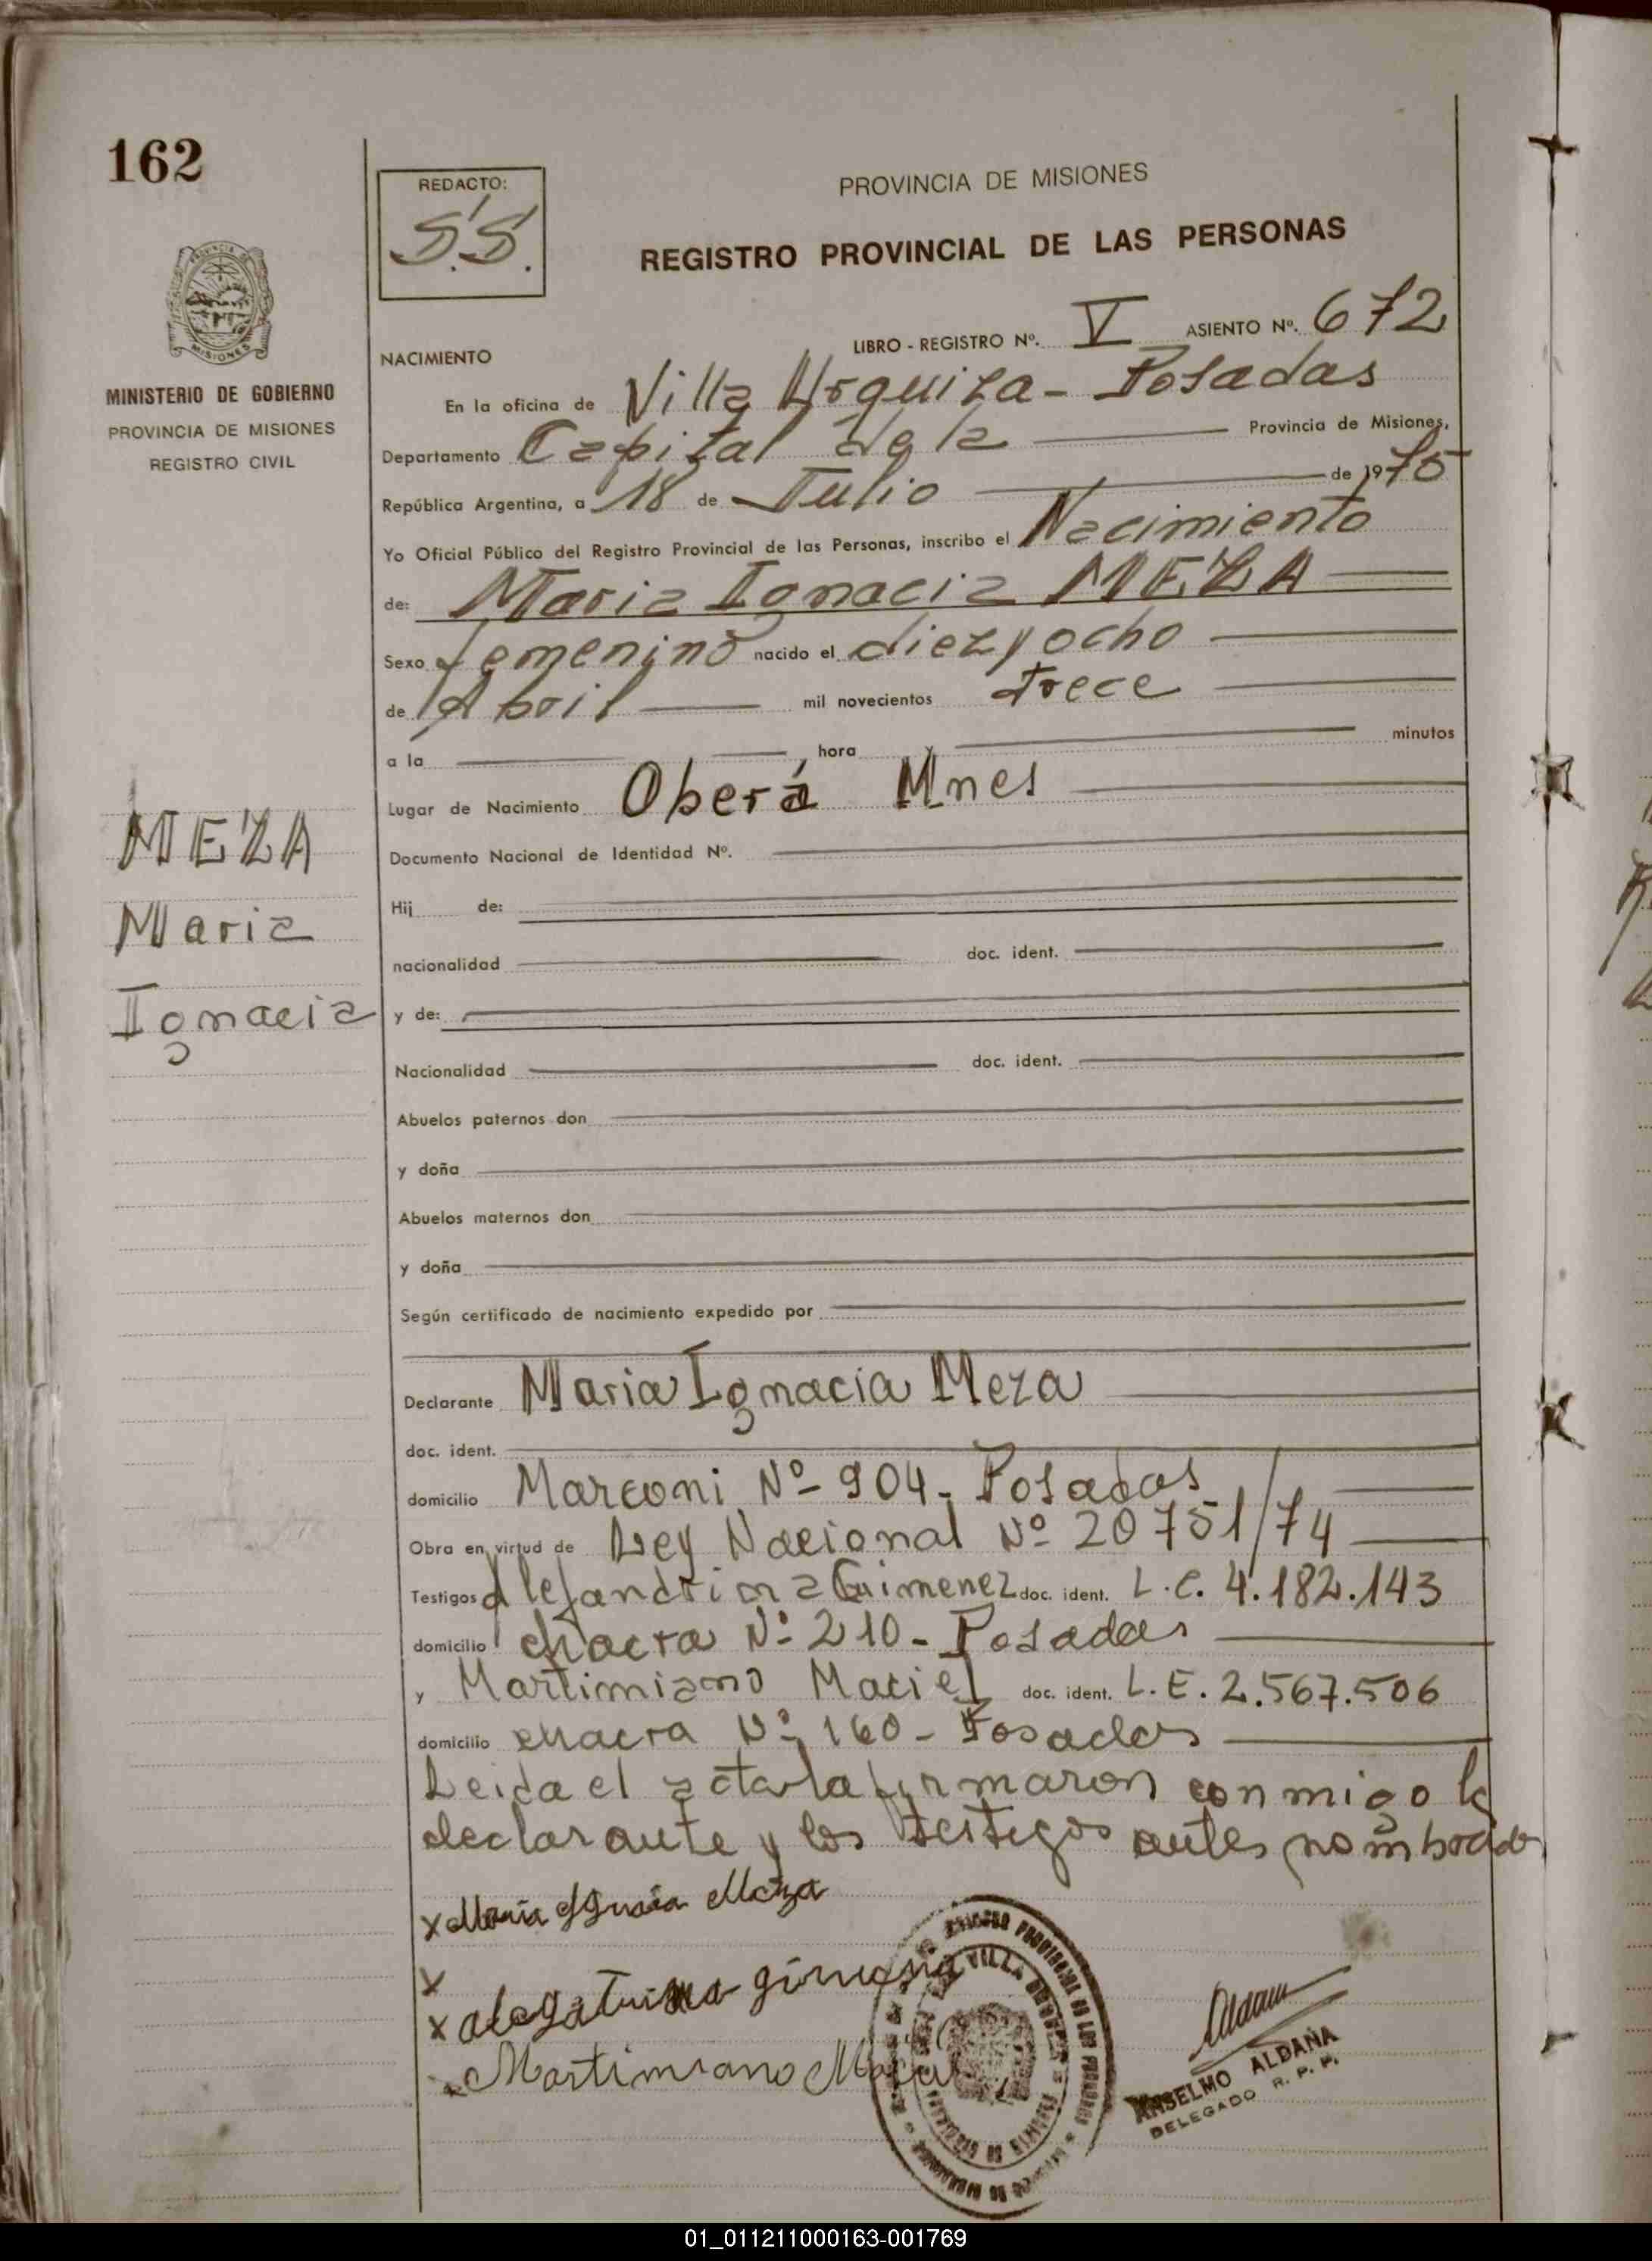 162
REDACTO:
S.S.
PROVINCIA DE MISIONES
REGISTRO PROVINCIAL DE LAS PERSONAS
MISIONES
MINISTERIO DE GOBIERNO
PROVINCIA DE MISIONES
REGISTRO CIVIL
LIBRO - REGISTRO Nº. V ASIENTO Nº. 672
NACIMIENTO
En la oficina de Villa Urquiza - Posadas
Departamento Capital de la Provincia de Misiones,
República Argentina, a 18 de Julio de 1975
Yo Oficial Público del Registro Provincial de las Personas, inscribo el Nacimiento
de: Maria Ignacia MEZA
Sexo femenino nacido el diez y ocho
de Abril mil novecientos trece
a la hora y minutos
Lugar de Nacimiento Oberá Mnes
Documento Nacional de Identidad Nº.
Hij de:
nacionalidad doc. ident.
y de:
Nacionalidad doc. ident.
Abuelos paternos don
y doña
Abuelos maternos don
y doña
Según certificado de nacimiento expedido por
MEZA
Maria
Ignacia
Declarante Maria Ignacia Meza
doc. ident.
domicilio Marconi Nº 904 - Posadas
Obra en virtud de Ley Nacional Nº 20751/74
Testigos Alejandrina Gimenez doc. ident. L.C. 4.182.143
domicilio chacra Nº 210 - Posadas
y Martimiano Maciel doc. ident. L.E. 2.567.506
domicilio chacra Nº 160 - Posadas
Leida el acta la firmaron conmigo la
declarante y los testigos antes nombrados
x Maria Ignacia Meza
x
x
Martimiano
VILLA
ANSELMO ALDAÑA
DELEGADO R. P. P.
01_011211000163-001769